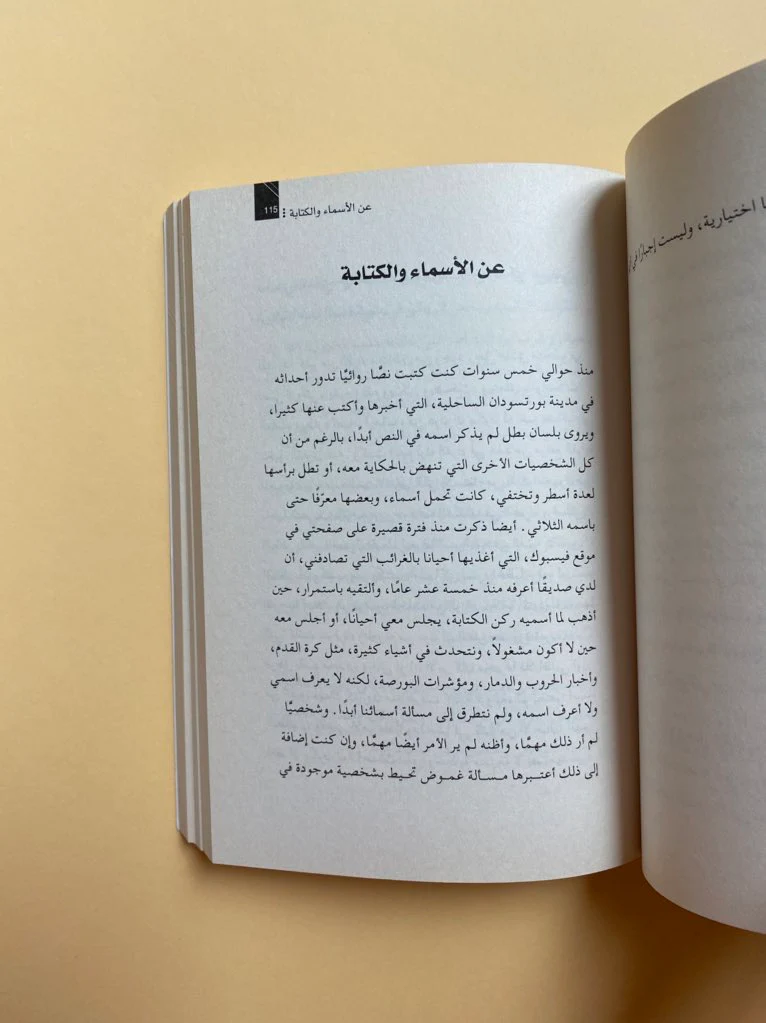 عن الأسماء والكتابة ⁝ 115
عن الأسماء والكتابة
منذ حوالي خمس سنوات كنت كتبت نصًّا روائيًّا تدور أحداثه
في مدينة بورتسودان الساحلية، التي أخبرها وأكتب عنها كثيرا،
ويروى بلسان بطل لم يذكر اسمه في النص أبدًا، بالرغم من أن
كل الشخصيات الأخرى التي تنهض بالحكاية معه، أو تطل برأسها
لعدة أسطر وتختفي، كانت تحمل أسماء، وبعضها معرّفًا حتى
باسمه الثلاثي. أيضا ذكرت منذ فترة قصيرة على صفحتي في
موقع فيسبوك، التي أغذيها أحيانا بالغرائب التي تصادفني، أن
لدي صديقًا أعرفه منذ خمسة عشر عامًا، وألتقيه باستمرار، حين
أذهب لما أسميه ركن الكتابة، يجلس معي أحيانًا، أو أجلس معه
حين لا أكون مشغولاً، ونتحدث في أشياء كثيرة، مثل كرة القدم،
وأخبار الحروب والدمار، ومؤشرات البورصة، لكنه لا يعرف اسمي
ولا أعرف اسمه، ولم نتطرق إلى مسألة أسمائنا أبدًا. وشخصيًّا
لم أر ذلك مهمًّا، وأظنه لم ير الأمر أيضًا مهمًّا، وإن كنت إضافة
إلى ذلك أعتبرها مسألة غموض تحيط بشخصية موجودة في
ا اختيارية، وليست إجبارًا في